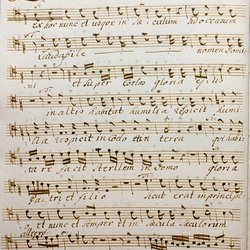 ex hoc nunc et usque in sæculum a solis ortu
laudabile nomen Domi
ni et super coelos gloria ejus
in altis habitat humilia respicit humi
lia respicit in coelo et in terra qui habi
tare facit sterilem in domo gloria
Patri et filio sicut erat in principi
et nunc et semper et in sæcula sæculorum